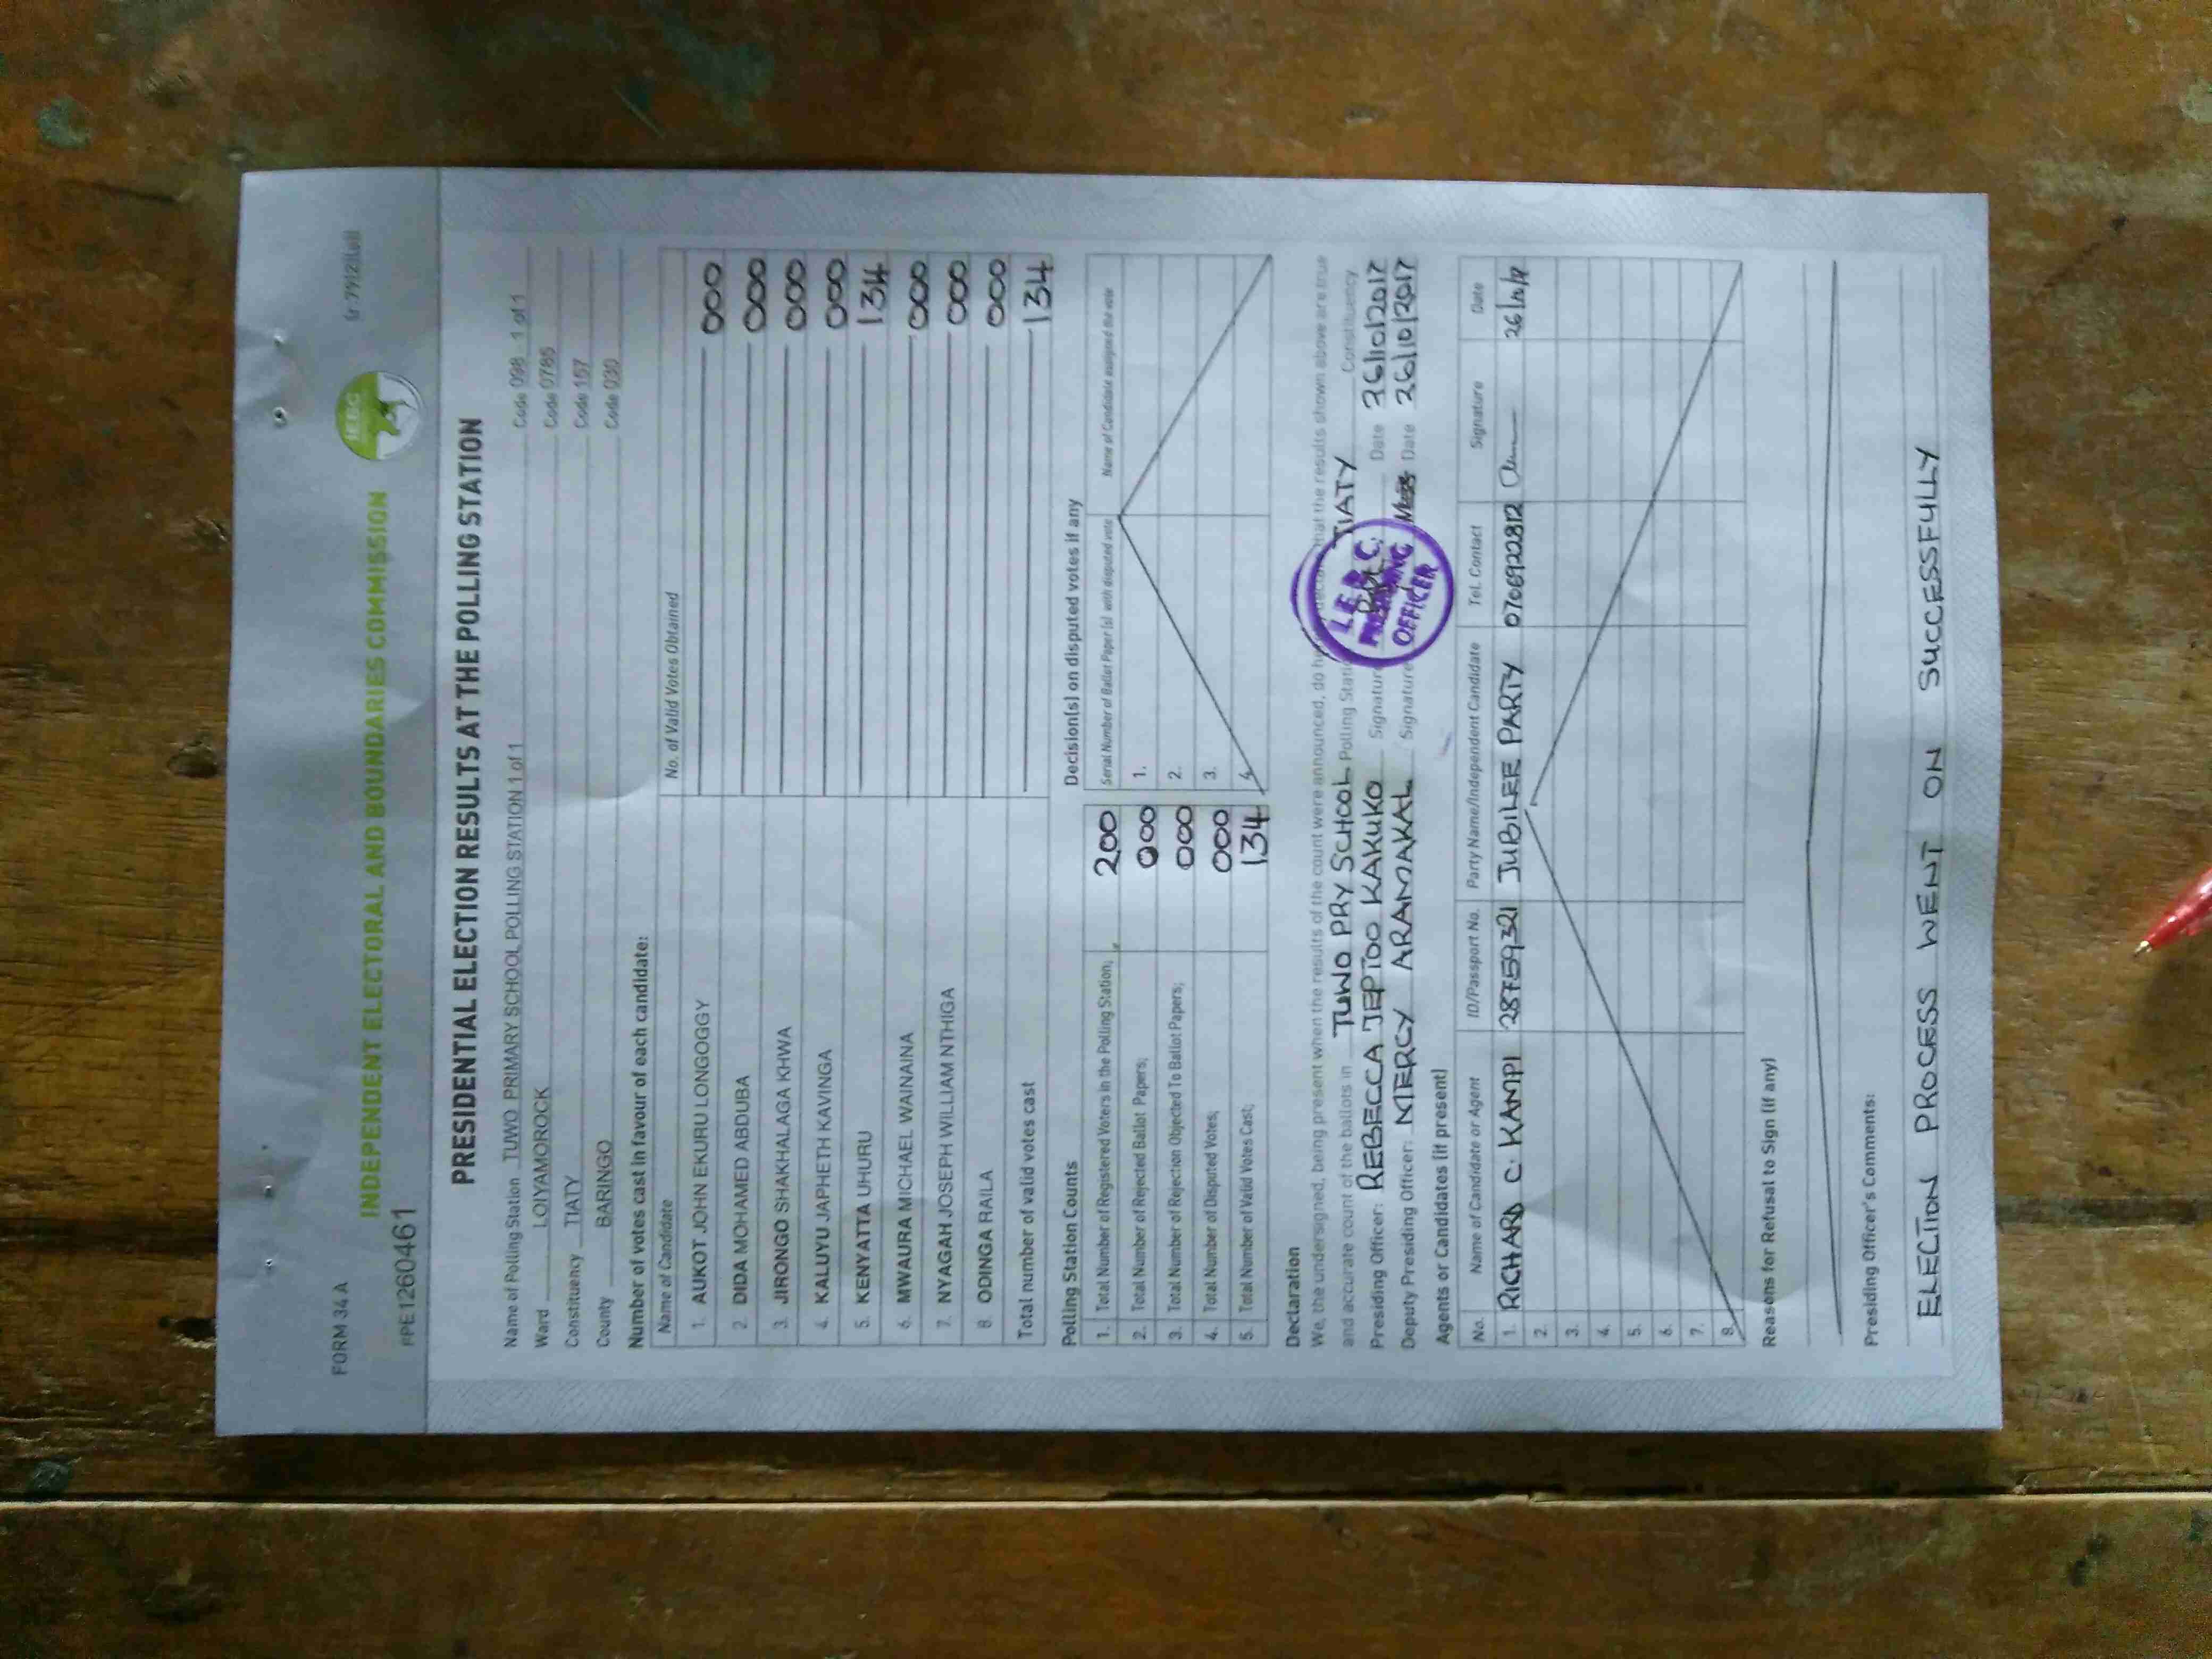 FORM 34 A
INDEPENDENT ELECTORAL AND BOUNDARIES COMMISSION
IEBC
PE1260461
PRESIDENTIAL ELECTION RESULTS AT THE POLLING STATION
Name of Polling Station TUWO PRIMARY SCHOOL POLLING STATION 1 of 1 Code 098 1 of 1
Ward LOIYAMOROCK Code 0785
Constituency TIATY Code 157
County BARINGO Code 030
Number of votes cast in favour of each candidate:
Name of Candidate No. of Valid Votes Obtained
1. AUKOT JOHN EKURU LONGOGGY 000
2. DIDA MOHAMED ABDUBA 000
3. JIRONGO SHAKHALAGA KHWA 000
4. KALUYU JAPHETH KAVINGA 000
5. KENYATTA UHURU 134
6. MWAURA MICHAEL WAINAINA 000
7. NYAGAH JOSEPH WILLIAM NTHIGA 000
8. ODINGA RAILA 000
Total number of valid votes cast 134
Polling Station Counts Decision(s) on disputed votes if any
1. Total Number of Registered Voters in the Polling Station; 200 Serial Number of Ballot Paper (s) with disputed vote Name of Candidate assigned the vote
2. Total Number of Rejected Ballot Papers; 000 1.
3. Total Number of Rejection Objected To Ballot Papers; 000 2.
4. Total Number of Disputed Votes; 000 3.
5. Total Number of Valid Votes Cast; 134 4.
Declaration
We, the undersigned, being present when the results of the count were announced, do that the results shown above are true
and accurate count of the ballots in TUWO PRY SCHOOL Polling TIATY Constituency
Presiding Officer: REBECCA JEPTOO KAKUKO Signature Date 26/10/2017
Deputy Presiding Officer: MERCY ARAMAKAL Signature Date 26/10/2017
OFFICER
Agents or Candidates (if present)
No. Name of Candidate or Agent ID/Passport No. Party Name/Independent Candidate Tel. Contact Signature Date
1. RICHARD C. KAMPI 28759321 JUBILEE PARTY 0706922812 26/10/17
2.
3.
4.
5.
6.
7.
8.
Reasons for Refusal to Sign (if any)
Presiding Officer's Comments:
ELECTION PROCESS WENT ON SUCCESSFULLY